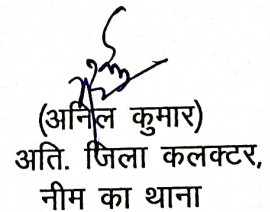 (अनिल कुमार)
अति. जिला कलक्टर,
नीम का थाना